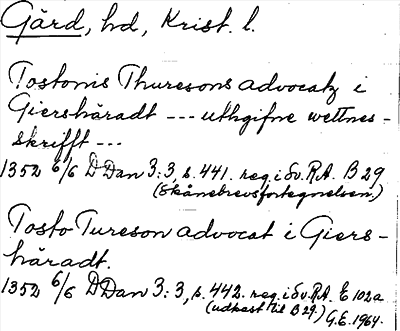 Gärd, hd, Krist. l.
Tostonis Thuresons advocatz i
Giershäradt --- uthgifne wettnes-
skrifft ---
1352 6/6 DDan 3:3, s. 441. reg. i Sv. R.A. B 29
(Skånebrevsfortegnelsen.)
Tosto Tureson advocat i Giers-
häradt.
1352 6/6 DDan 3:3, s. 442. reg. i Sv. R.A. E 102a
(udkast til B 29.) G.E. 1964.